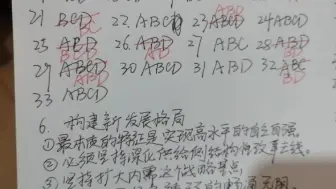 21 BCD BC 22 ABCD 23 ABCD ABD 24 ABCD
25 ABD BD 26 ABD AB 27 ABC 28 ABD AD
29 ABCD ABD 30 ABCD 31 ABCD 32 ABC BD
33 ABCD
6. 构建新发展格局
①最本质的特征是实现高水平的自立自强
②必须坚持深化供给侧结构性改革主线
③坚持扩大内需这个战略基点